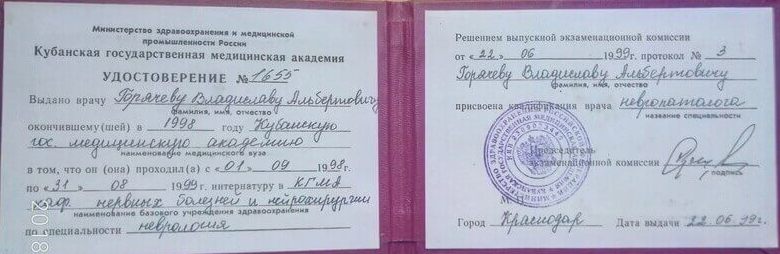 Министерство здравоохранения и медицинской
промышленности России
Кубанская государственная медицинская академия
УДОСТОВЕРЕНИЕ № 1655
Выдано врачу Горячеву Владиславу Альбертовичу
фамилия, имя, отчество
окончившему(шей) в 1998 году Кубанскую
гос. медицинскую академию
наименование медицинского вуза
в том, что он (она) проходил(а) с «01» 09 1998г.
по «31» 08 1999г. интернатуру в КГМА
каф. нервных болезней и нейрохирургии
наименование базового учреждения здравоохранения
по специальности неврология
Решением выпускной экзаменационной комиссии
от «22» 06 1999г. протокол № 3
Горячеву Владиславу Альбертовичу
фамилия, имя, отчество
присвоена квалификация врача невропатолога
название специальности
Председатель
экзаменационной комиссии
подпись
М.
Город Краснодар Дата выдачи 22.06.99г.